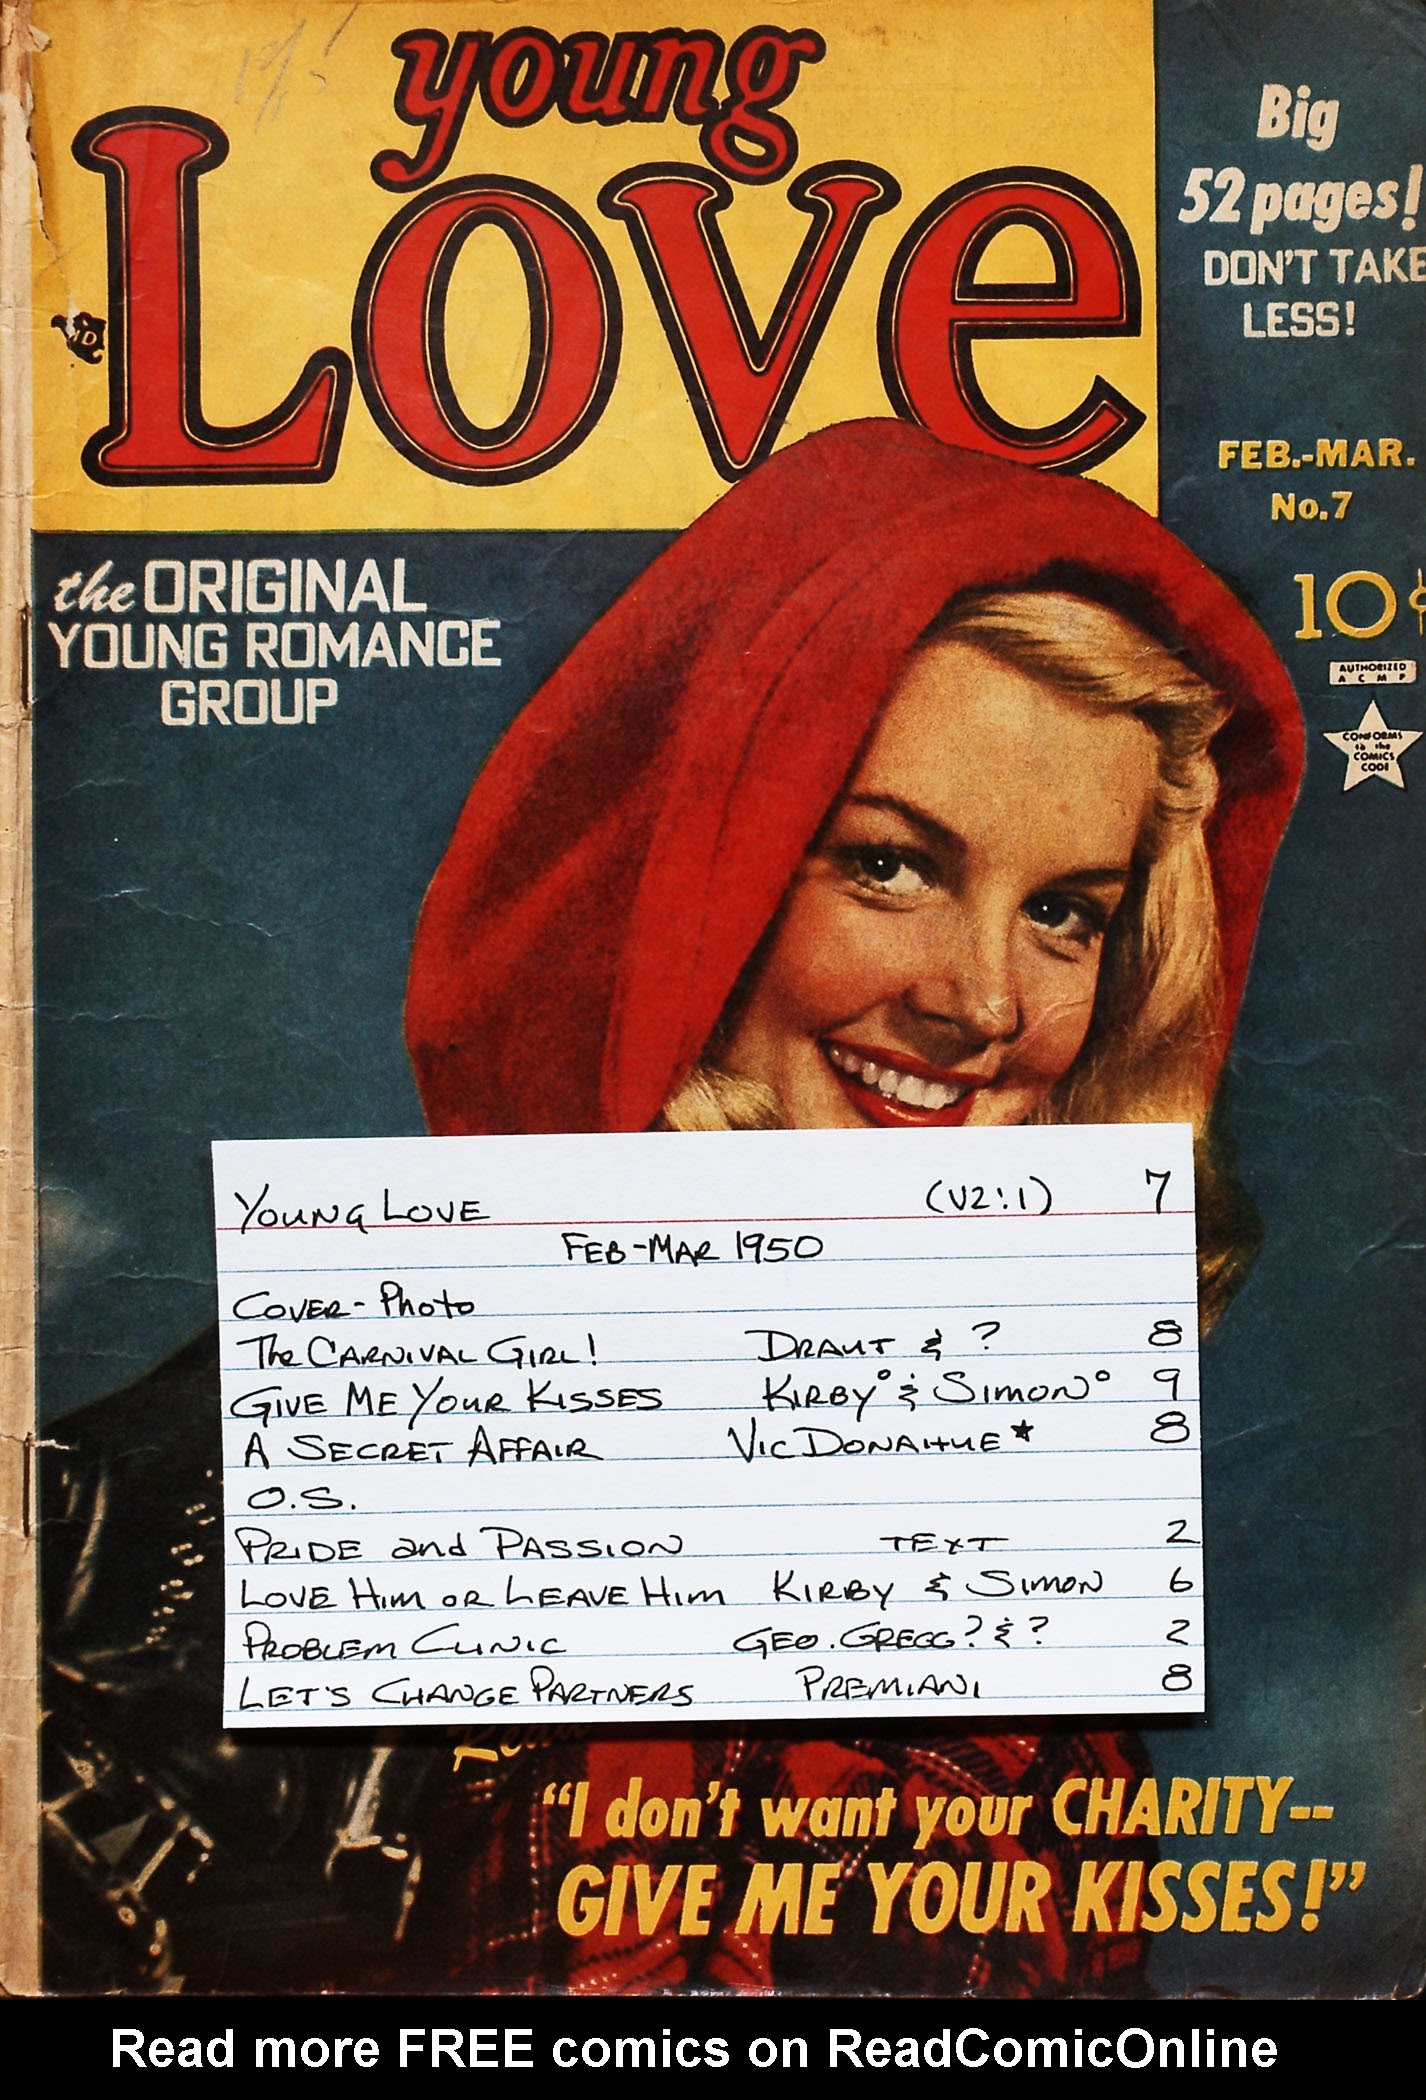 young
Love
Big
52 pages!
DON'T TAKE
LESS!
FEB.-MAR.
No.7
10¢
AUTHORIZED
A C M P
CONFORMS
to the
COMICS
CODE
the ORIGINAL
YOUNG ROMANCE
GROUP
YOUNG LOVE (V2:1) 7
FEB-MAR 1950
COVER - Photo
The CARNIVAL GIRL! DRAUT & ? 8
GIVE ME YOUR KISSES KIRBY° & SIMON° 9
A SECRET AFFAIR VIC DONAHUE★ 8
O.S.
PRIDE and PASSION TEXT 2
LOVE HIM OR LEAVE HIM KIRBY & SIMON 6
PROBLEM CLINIC GEO. GREGG? & ? 2
LET'S CHANGE PARTNERS PREMIANI 8
"I don't want your CHARITY--
GIVE ME YOUR KISSES!"
Read more FREE comics on ReadComicOnline